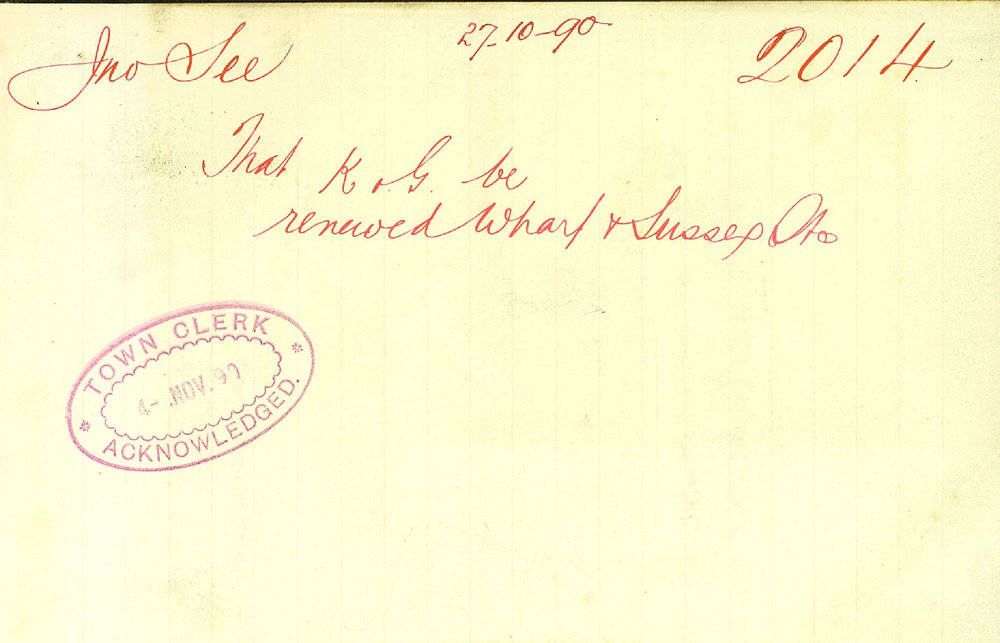 Jno See
27-10-90
2014
That K & G. be
renewed Wharf & Sussex Sts
TOWN CLERK
4- NOV. 90
ACKNOWLEDGED.